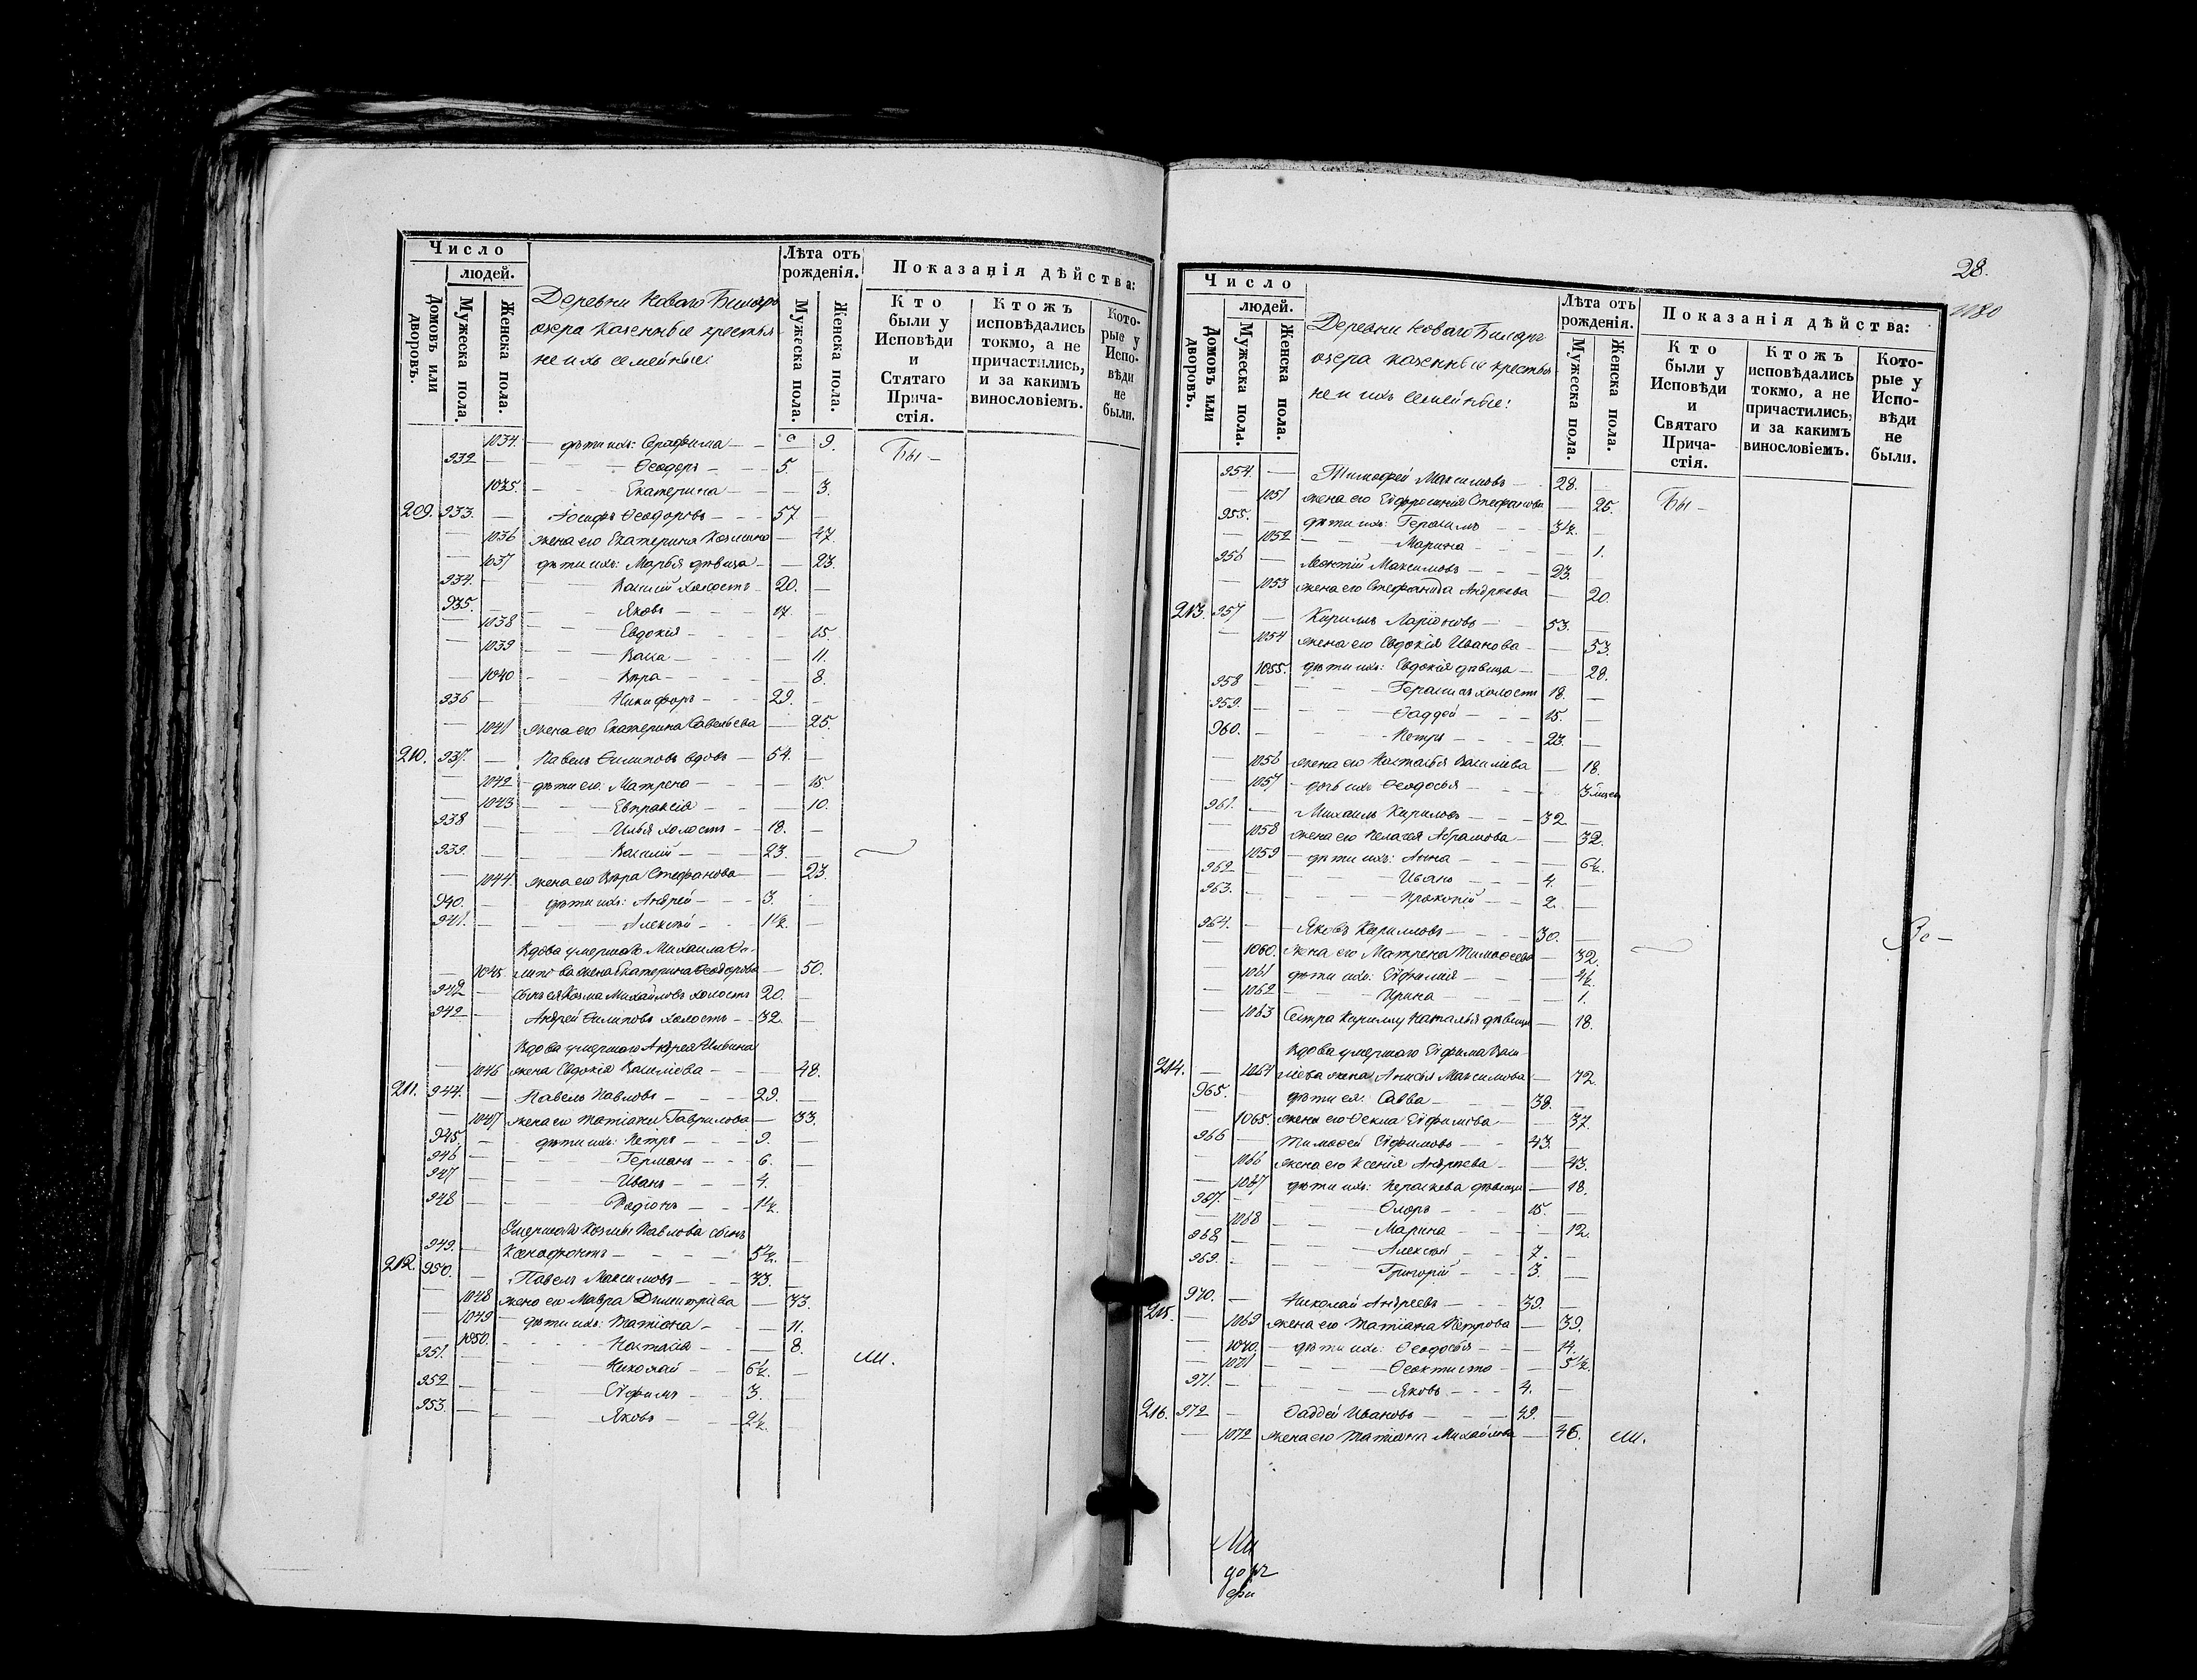 Число
людей.
Домовъ или дворовъ.
Мужеска пола.
Женска пола.
Деревни Новаго
озера казенные крестья-
не и ихъ семейные:
Лѣта отъ рожденія.
Мужеска пола.
Женска пола.
Показанія дѣйства:
Кто были у Исповѣди и Стятаго Прича-стія.
Ктожъ исповѣдались токмо, а не причастились, и за какимъ винословіемъ.
Кото-рые у Испо-вѣди не были.
1034. — дѣти ихъ: Серафима — — 9. Бы —
932 — Ѳеодоръ — 5. —
1035. — Екатерина — — 3.
209. 933. — Іосифъ Ѳеодоровъ — 57. —
— 1036 жена его Екатерина — 47.
— 1037 дѣти ихъ: Марья дѣвица — — 23.
934. — Василій холостъ — 20. —
935. — Яковъ — 17. —
— 1038 — Евдокія — — 15.
— 1039 — Васса — — 11.
— 1040 — Вѣра — — 8.
936 — Никифоръ — 29. —
— 1041 жена его Екатерина Савельева — 25.
210. 937. — Павелъ Филиповъ вдовъ — 54. —
— 1042 — дѣти его: Матрена — — 15.
— 1043 — Евпраксія — — 10.
938 — Илья холостъ — 18. —
939. — Василій — 23. —
— 1044 жена его Вѣра Стефанова — — 23.
940. — дѣти ихъ: Андрей — 3. —
941. — Алексѣй — 1½. —
Вдова умершаго Михаила Фи-
— 1045. липова жена Екатерина Ѳеодорова — 50.
942 — сынъ ея Козма Михайловъ холостъ 20. —
942 — Андрей Филиповъ холостъ — 32. —
Вдова умершаго Андрея Ильина
— 1046 жена Евдокія Василіева — — 48.
211. 944. — Павелъ Павловъ — 29. —
— 1047 жена его Татіана Гаврилова — 33.
945. — дѣти ихъ: Петръ — 9. —
946 — Германъ — 6. —
947 — Иванъ — 4. —
948 — Родіонъ — 1½.
Умершаго Козмы Павлова сынъ
949. — Ксенофонтъ — 5½. —
212. 950. — Павелъ Максимовъ — 33. —
— 1048 жена его Мавра Димитріева — 33.
— 1049 — дѣти ихъ: Татіана — — 11.
— 1050. — Настасія — — 8.
951. — Николай — 6½. — ли.
952 — Евфимъ — 3. —
953. — Яковъ — 2½. —
28.
Число
людей.
Домовъ или дворовъ.
Мужеска пола.
Женска пола.
Деревни Новаго
озера казенные крестья-
не и ихъ семейные:
Лѣта отъ рожденія.
Мужеска пола.
Женска пола.
Показанія дѣйства:
Кто были у Исповѣди и Святаго Прича-стія.
Ктожъ исповѣдались токмо, а не причастились, и за какимъ винословіемъ.
Кото-рые у Испо-вѣди не были.
954. — Тимоѳей Максимовъ — 28. —
— 1051 жена его Евфросинія Стефанова — 25. Бы —
955. — дѣти ихъ: Герасимъ — 3½. —
— 1052 — Марина — — 1.
956 — Леонтій Максимовъ — 23. —
— 1053 жена его Стефанида Андреева — 20.
213. 957 — Кирилъ Ларіоновъ — 53. —
— 1054 жена его Евдокія Иванова — — 53.
— 1055. дѣти ихъ: Евдокія дѣвица — — 28.
958 — Герасимъ холостъ 18. —
959. — Ѳаддей — 15. —
960. — Петръ — 23. —
— 1056 жена его Наталья Василіева — 18.
— 1057 — дочь ихъ Ѳеодосья — — 3 мѣсец
961. — Михаилъ Кириловъ — 32. —
— 1058 жена его Пелагея Абрамова — 32.
— 1059 — дѣти ихъ: Анна — — 6½.
962 — Иванъ — 4. —
963. — Прокопій — 2. —
964. — Яковъ Кирилловъ — 30. —
— 1060. жена его Матрена Тимоѳеева — 32.
— 1061 дѣти ихъ: Евфимія — — 4½.
— 1062 — Ирина — — 1.
— 1063 Сестра Кириллу Наталья дѣвица — 18.
Вдова умершаго Евфима Васи-
214. — 1064 ліева жена Анисья Максимова — 72.
965. — дѣти ея: Савва — 38. —
— 1065. жена его Ѳекла Евфимова — — 37.
966 — Тимоѳей Евфимовъ — 43. —
— 1066 жена его Ксенія Андреева — — 43.
— 1067 дѣти ихъ: Параскева дѣвица — 18.
967. — Флоръ — 15. —
— 1068 — Марина — — 12.
968 — Алексѣй — 7. —
969. — Григорій — 3. —
215. 970. — Николай Андреевъ — 39. —
— 1069 жена его Татіана Петрова — 39.
— 1070. — дѣти ихъ: Ѳеодосья — — 14.
— 1071 — Ѳеоктиста — — 5½.
971. — Яковъ — 4. —
216. 972 — Ѳаддей Ивановъ — 49. —
— 1072 жена его Татіана Михайлова — 46. ли.